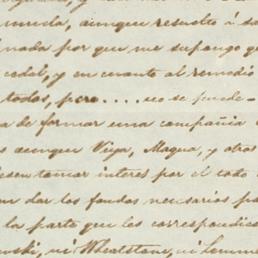 aunque resuelto á sa
nada por que me supongo q
cadel, y en cuanto al remedio
todos, pero.... no se puede
a de formar una compañia
s aunque Viya, Magua, y otros
tomar interes por el todo
dar los fondos necesarios pa
la parte que les correspondie
ni Wheatstone, ni